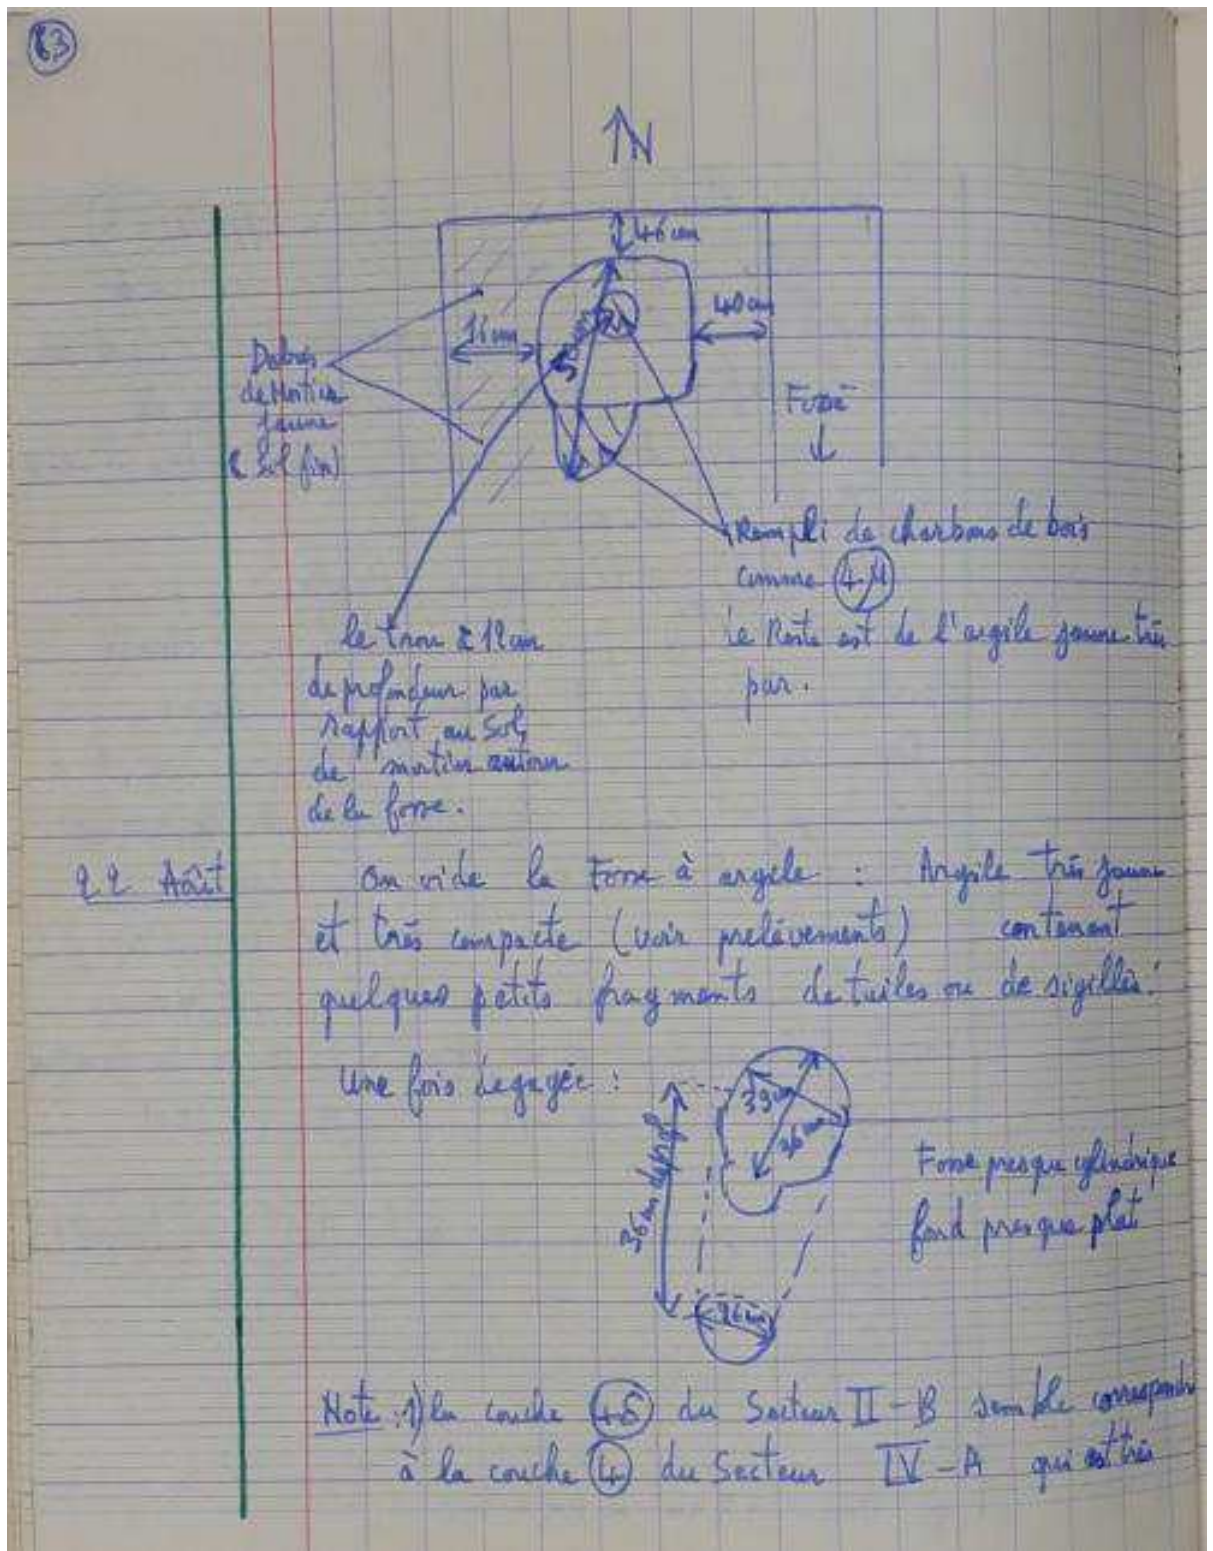 63
N
46 cm
40 cm
16 cm
Debris
de Mortier
jaune
(Sol fin)
Fossé
Rempli de charbons de bois
comme 4.M
Le Reste est de l'argile jaune très
pur.
le trou à 12 cm
de profondeur par
rapport au Sol
de mortier autour
de la fosse.
22 Août
On vide la Fosse à argile : Argile très jaune
et très compacte (voir prelèvements) contenant
quelques petits fragments de tuiles ou de sigillés.
Une fois degagée :
39 cm
36 cm
36 cm de prof
26 cm
Fosse presque cylindrique
fond presque plat
Note : 1) la couche 4.5 du Secteur II-B semble correspondre
à la couche 4 du Secteur IV-A qui est très